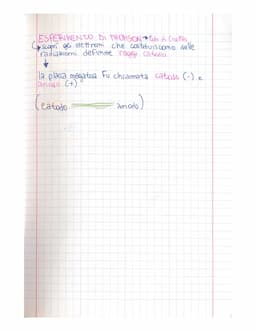 ESPERIMENTO DI THOMSON → tubi di Crookes
↳ scoprì gli elettroni che costituiscono delle
radiazioni definite raggi catodici
↓
la placca negativa fu chiamata catodo (-) e
anodo (+)
(catodo anodo)